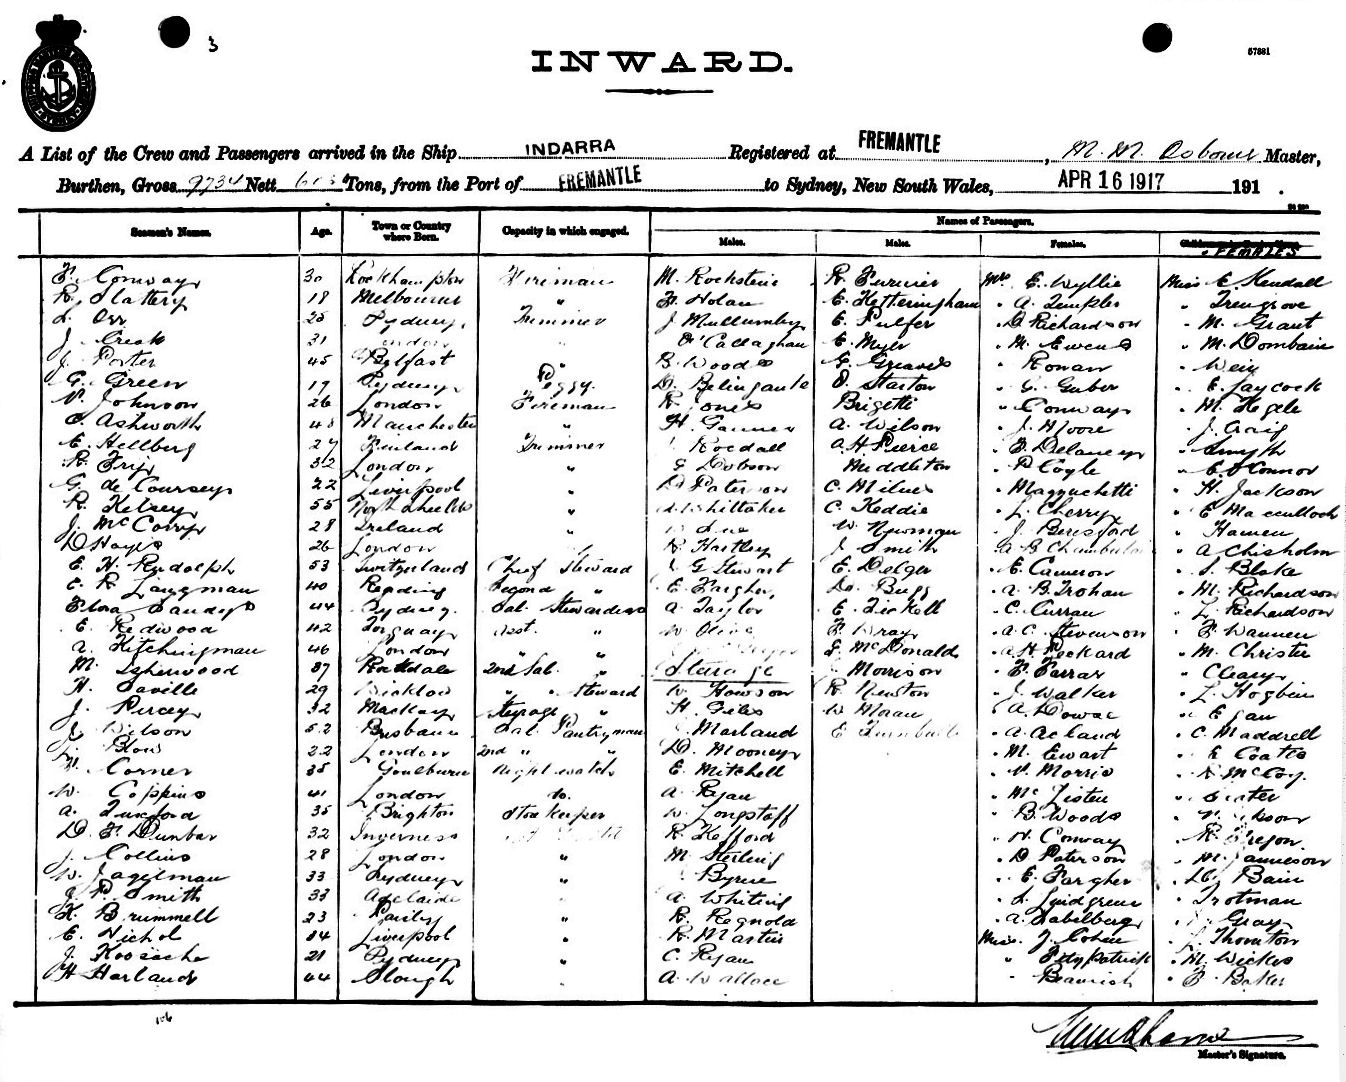 3
57881
INWARD.
A List of the Crew and Passengers arrived in the Ship INDARRA Registered at FREMANTLE, M. M. Osborne Master,
Burthen, Gross 9734 Nett Tons, from the Port of FREMANTLE to Sydney, New South Wales, APR 16 1917 191 .
Names of Passengers.
Seamen's Names. Age. Town or Country where Born. Capacity in which engaged. Males. Males. Females. FEMALES
F. Conway 30 Rockhampton Fireman M. Rockstein R. Furnier Mrs E. Wyllie Miss E. Kendall
R. Slattery 18 Melbourne " F. Nolan E. Ketteringham " A. Temples " Trengrove
L. Orr 25 Sydney Trimmer J. Mullumby E. Pulfer " D Richardson " M. Grant
J. Creak 31 London " O'Callaghan E. Myer " M. Ewens " M. Dombain
J. Porter 45 Belfast " B. Woods G. Greaves " Ronan " Weir
G. Green 19 Sydney Peggy D. Belingante Starton " G. Guber " E. Jaycock
V. Johnson 26 London Fireman R. Jones Brigetti " Conway " M. Kegele
C. Ashworth 40 Manchester " H. Ganner A. Wilson " J. Moore " J. Craig
E. Hellberg 27 Finland Trimmer Roedall A. H. Pierce " F. Delaney " Smyth
R. Fry 32 London " G Dobson Middleton " P. Coyle " E O'Connor
G. de Coursey 22 Liverpool " D. Paterson C. Milnes " Magnachetti " H. Jackson
R. Kelsey 55 North Shields " Whittaker C. Keddie " L. Cherry " E Macculloch
J. McCorry 28 Ireland " W. Newman " J. Beresford " Hannen
D Hayes 26 London " R. Hartley J. Smith " A. B Chamberlain " A Chisholm
E. H. Rudolph 53 Switzerland Chief Steward G Stewart E. Delger " E. Cameron " S. Blake
E. R. Langman 40 Reading Second " E. Fargher D. Bugg " A. B. Trohan " M. Richardson
Flora Sandys 44 Sydney Sal. Stewardess A. Taylor E. Tickell " C. Curran " L. Richardson
E. Redwood 42 Torquay Asst. " W. Olive F. Wray " A. C. Stevenson " F. Wannen
A. Kitchingman 46 London " McDonald " A. H. Peckard " M. Christie
M. Isherwood 37 Rockdale 2nd Sal. " Steerage Morrison " F. Farrar " Cleary
H. Saville 29 Wicklow " " Steward W. Howson R. Newton " J. Walker " L. Hogbin
J. Piercey 32 Mackay Steerage " H. Giles W Moran " A. Dowse " Egan
J. Wilson 52 Brisbane Sal. Pantryman Marland E Turnbull " A. Acland " C. Maddrell
Blow 22 London 2nd " " D. Mooney " M. Ewart " E Coates
Corner 35 Goulburn Night watch E. Mitchell " V. Morris " R McCoy
W. Coppins 41 London do. A. Ryan " McLister
A. Tuxford 35 Brighton Storekeeper W. Longstaff " B. Woods
D. F. Dunbar 32 Inverness R. Kefford " N. Conway " R. Gregon
J. Collins 28 London " M. Sterling " D. Paterson " M. Jamieson
W. Jagelman 33 Sydney " Byrne " E. Fargher " D. Bain
J. P. Smith 33 Adelaide " A. Whiting " L. Lindgren " Trotman
K. Brummell 23 " R. Reynolds " A. Dabelberg " Gray
E. Nichol 34 Liverpool " R. Martin Miss J. Cohen " L. Thornton
J. Koosache 21 Sydney " C. Ryan " Fitzpatrick " M. Wickes
H Harland 44 Slough " A. Wallace " Beamish " F. Baker
106
Master's Signature.